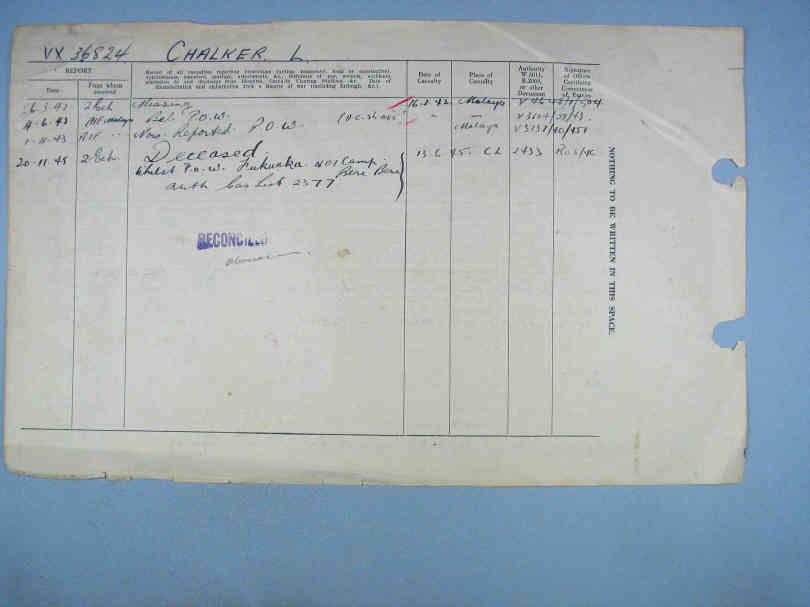 VX 36824 CHALKER L.
REPORT
Date
From whom received
Record of all casualties regarding promotions (acting, temporary, local or substantive), appointments, transfers, postings, attachments, &c., forfeiture of pay, wounds, accidents, admission to and discharge from Hospital, Casualty Clearing Stations, &c. Date of disembarkation and embarkation from a theatre of war (including furlough, &c.)
Date of Casualty
Place of Casualty
Authority W.3011, B.2069, or other Document
Signature of Officer Certifying Correctness of Entries
6.3.42 2 Ech Missing 16.2.42 Malaya
4-6.43 AIF Malaya Bel. P.O.W. " —
1-11-43 AIF " Now Reported P.O.W. Malaya
20-11-45 2 Ech. Deceased 13-6 45. CL 2433
Whilst P.O.W. Fukuoka No1 Camp
Beri Beri
auth Cas List 2377
RECONCILED
NOTHING TO BE WRITTEN IN THIS SPACE.